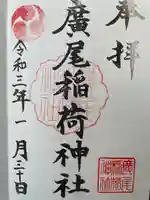 奉拝
廣尾稲荷神社
令和三年一月三十日